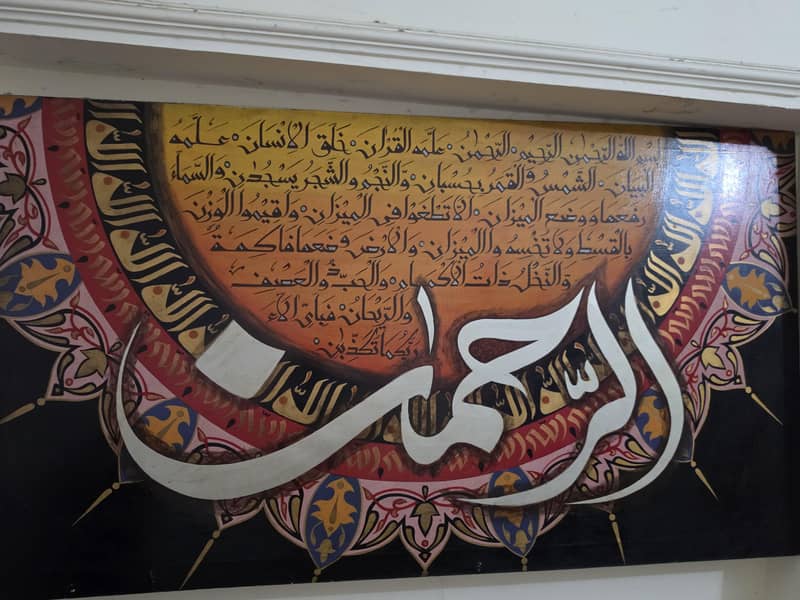 بسم الله الرحمن الرحيم الرحمن علم القران خلق الانسان علمه
البيان الشمس والقمر بحسبان والنجم والشجر يسجدن والسماء
رفعها ووضع الميزان الا تطغوا في الميزان واقيموا الوزن
بالقسط ولا تخسروا الميزان والارض وضعها فاكهة
والنخل ذات الاكمام والحب ذو العصف
والريحان فباي الاء
ربكما تكذبن
الرحمٰن
الله الله الله الله الله الله الله الله